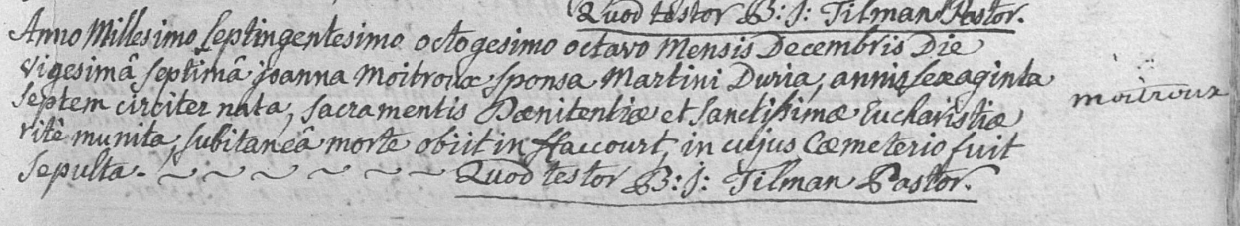 Quod testor B: J: Tilman Pastor.
Anno Millesimo Septingentesimo octogesimo octavo Mensis Decembris Die
Vigesimâ septimâ joanna Moitroux sponsa Martini Duria, annis sexaginta
septem circiter nata, sacramentis Pœnitentiæ et Sanctissimæ Eucharistiæ
ritè munita, subitaneâ morte obiit in Haccourt, in cujus Cœmeterio fuit
sepulta. Quod testor B: J: Tilman Pastor.
moitroux